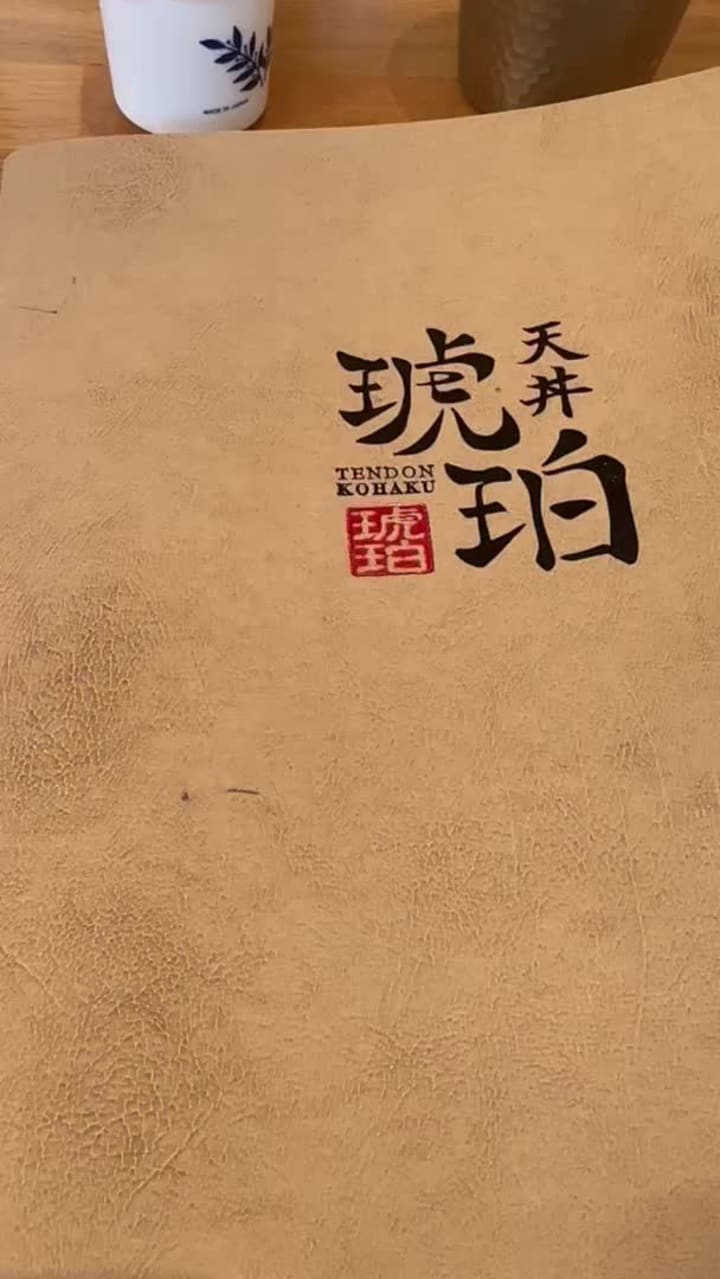 MADE IN JAPAN
天丼
琥珀
TENDON
KOHAKU
琥珀